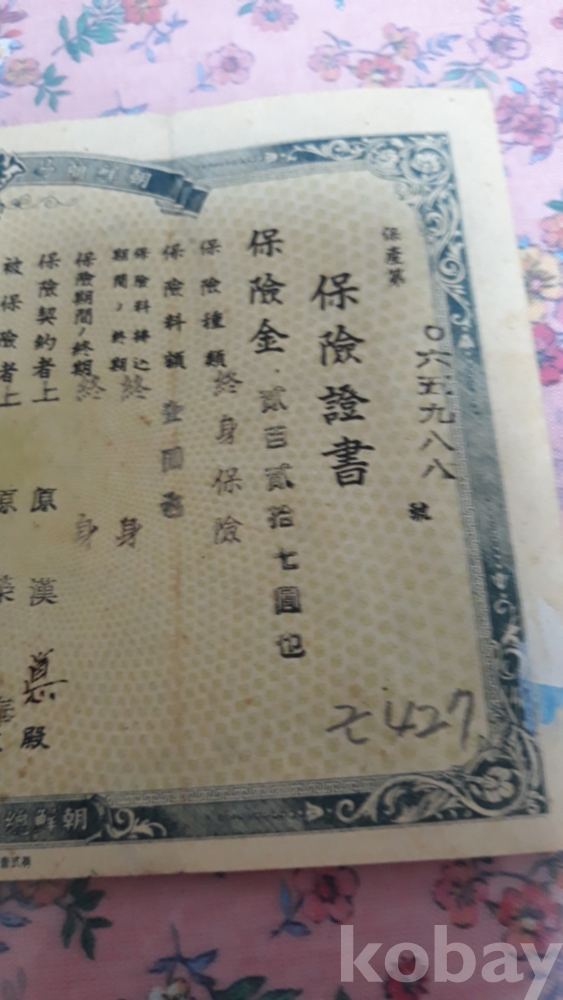 保險證書
保產第
〇六五九八八
號
保險金 貳百貳拾七圓也
保險種類 終身保險
保險料額 壹圓
保險料拂込
期間ノ終期 終身
保險期間ノ終期 終身
保險契約者 上原漢 殿
被保險者 上原
427
朝鮮
kobay